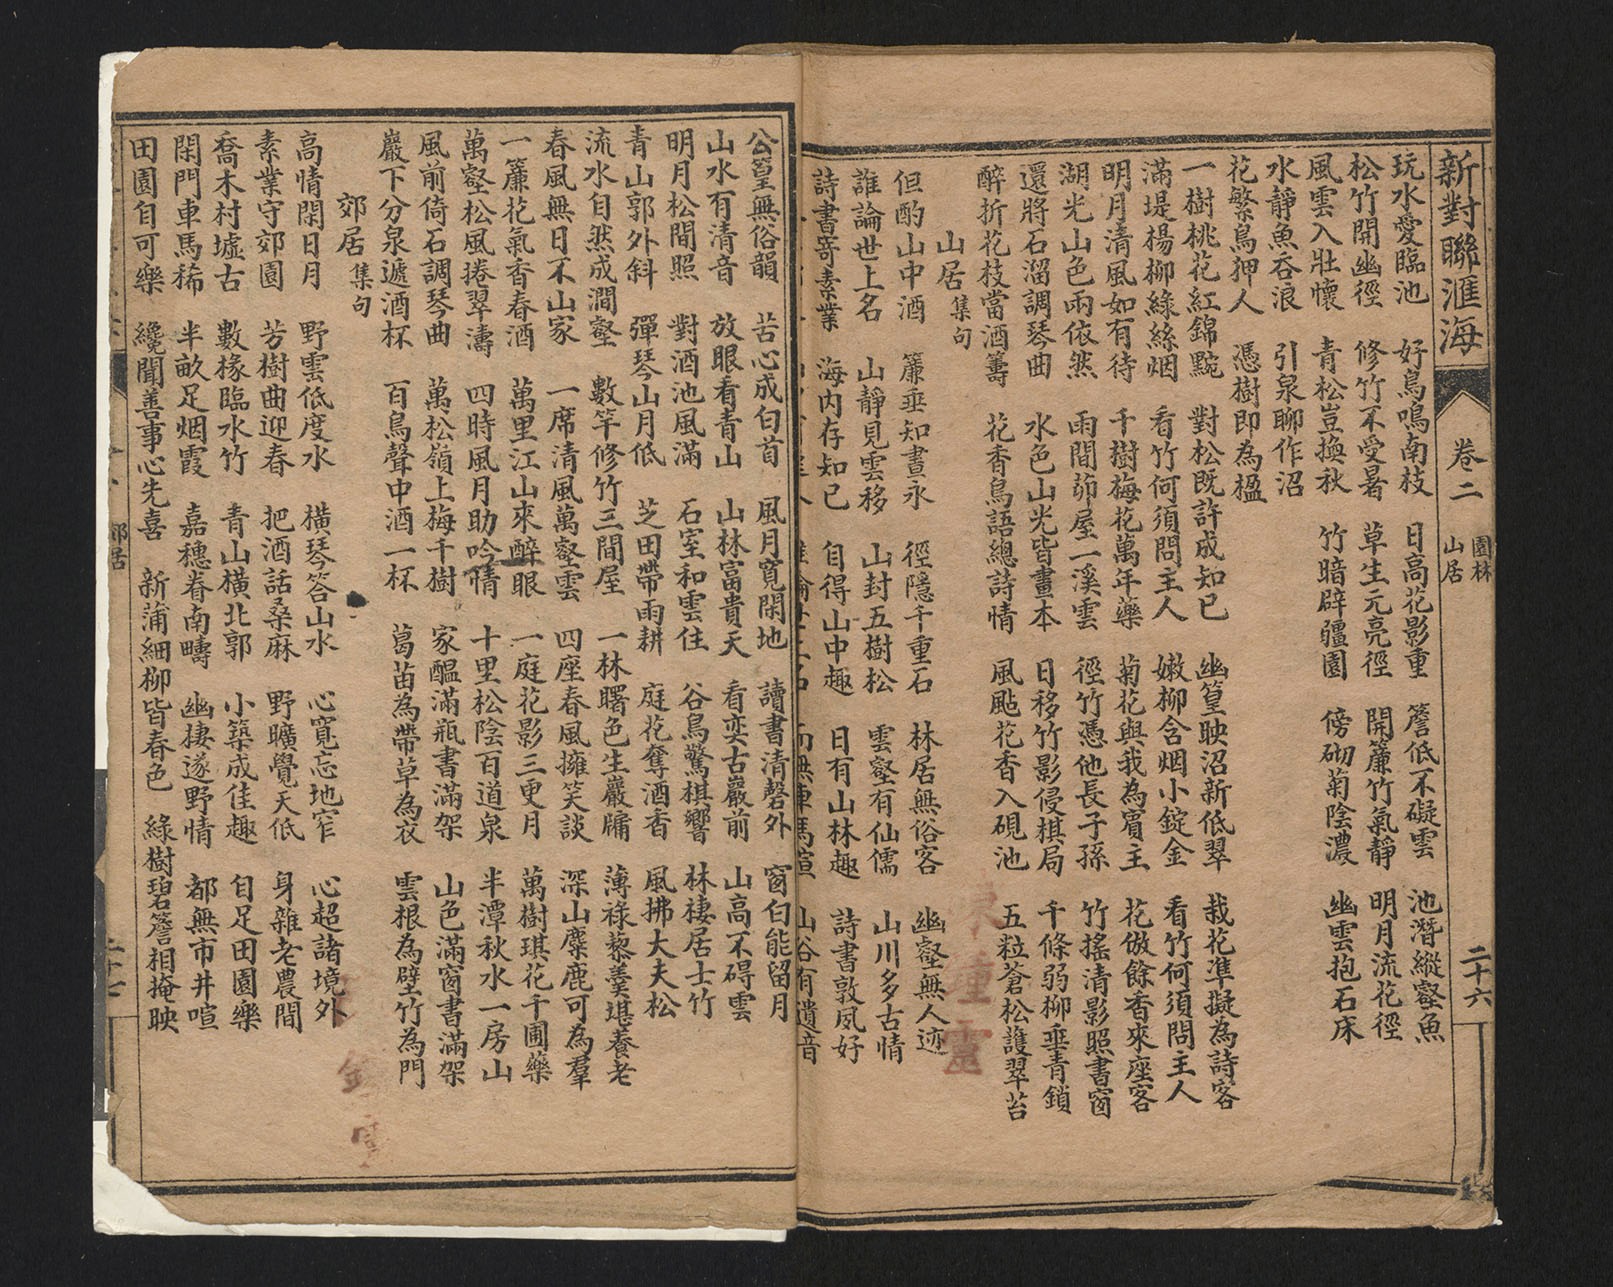 新對聯滙海
卷二
園林
山居
二十六
玩水愛臨池 好鳥鳴南枝 日高花影重 簷低不礙雲 池潛縱壑魚
松竹開幽徑 修竹不受暑 草生元亮徑 開簾竹氣靜 明月流花徑
風雲入壯懷 青松豈換秋 竹暗辟疆園 傍砌菊陰濃 幽雲抱石床
水靜魚吞浪 引泉聊作沼
花繁鳥狎人 憑樹即為楹
一樹桃花紅錦黦 對松既許成知已 幽篁映沼新低翠 栽花準擬為詩客
滿堤楊柳綠絲烟 看竹何須問主人 嫩柳含烟小錠金 看竹何須問主人
明月清風如有待 千樹梅花萬年藥 菊花與我為賓主 花倣餘香來座客
湖光山色兩依然 雨間茆屋一溪雲 徑竹憑他長子孫 竹搖清影照書窗
還將石溜調琴曲 水色山光皆畫本 日移竹影侵棋局 千條弱柳垂青鎖
醉折花枝當酒籌 花香鳥語總詩情 風颭花香入硯池 五粒蒼松護翠苔
山居 集句
但酌山中酒 簾垂知晝永 徑隱千重石 林居無俗客 幽壑無人迹
誰論世上名 山靜見雲移 山封五樹松 雲壑有仙儒 山川多古情
詩書寄素業 海內存知已 自得山中趣 日有山林趣 詩書敦夙好
山谷有遺音
公篁無俗韻 苦心成白首 風月寬閑地 讀書清磬外 窗白能留月
山水有清音 放眼看青山 山林富貴天 看奕古巖前 山高不碍雲
明月松間照 對酒池風滿 石室和雲住 谷鳥驚棋響 林棲居士竹
青山郭外斜 彈琴山月低 芝田帶雨耕 庭花奪酒香 風拂大夫松
流水自然成澗壑 數竿修竹三間屋 一林曙色生巖牖 薄祿藜羹堪養老
春風無日不山家 一席清風萬壑雲 四座春風擁笑談 深山麋鹿可為羣
一簾花氣香春酒 萬里江山來醉眼 一庭花影三更月 萬樹琪花千圃藥
萬壑松風捲翠濤 四時風月助吟情 十里松陰百道泉 半潭秋水一房山
風前倚石調琴曲 萬松嶺上梅千樹 家醞滿瓶書滿架 山色滿窗書滿架
巖下分泉遞酒杯 百鳥聲中酒一杯 葛苗為帶草為衣 雲根為壁竹為門
郊居 集句
高情閑日月 野雲低度水 橫琴答山水 心寬忘地窄 心超諸境外
素業守郊園 芳樹曲迎春 把酒話桑麻 野曠覺天低 身雜老農間
喬木村墟古 數椽臨水竹 青山橫北郭 小築成佳趣 自足田園樂
閑門車馬稀 半畝足烟霞 嘉穗眷南疇 幽棲遂野情 都無市井喧
田園自可樂 纔聞善事心先喜 新蒲細柳皆春色 綠樹碧簷相掩映
郊居
二十七